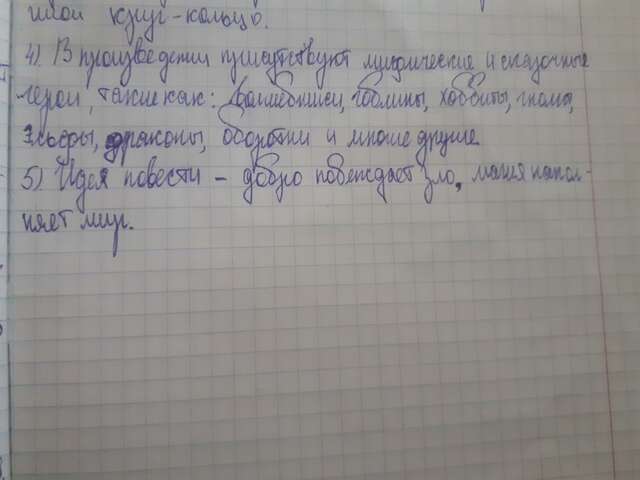 шой круг-кольцо.
4) В произведении присутствуют мифические и сказочные
герои, такие как: волшебники, гоблины, хоббиты, гномы,
эльфы, драконы, оборотни и многие другие
5) Идея повести - добро побеждает зло, магия напол-
няет мир.